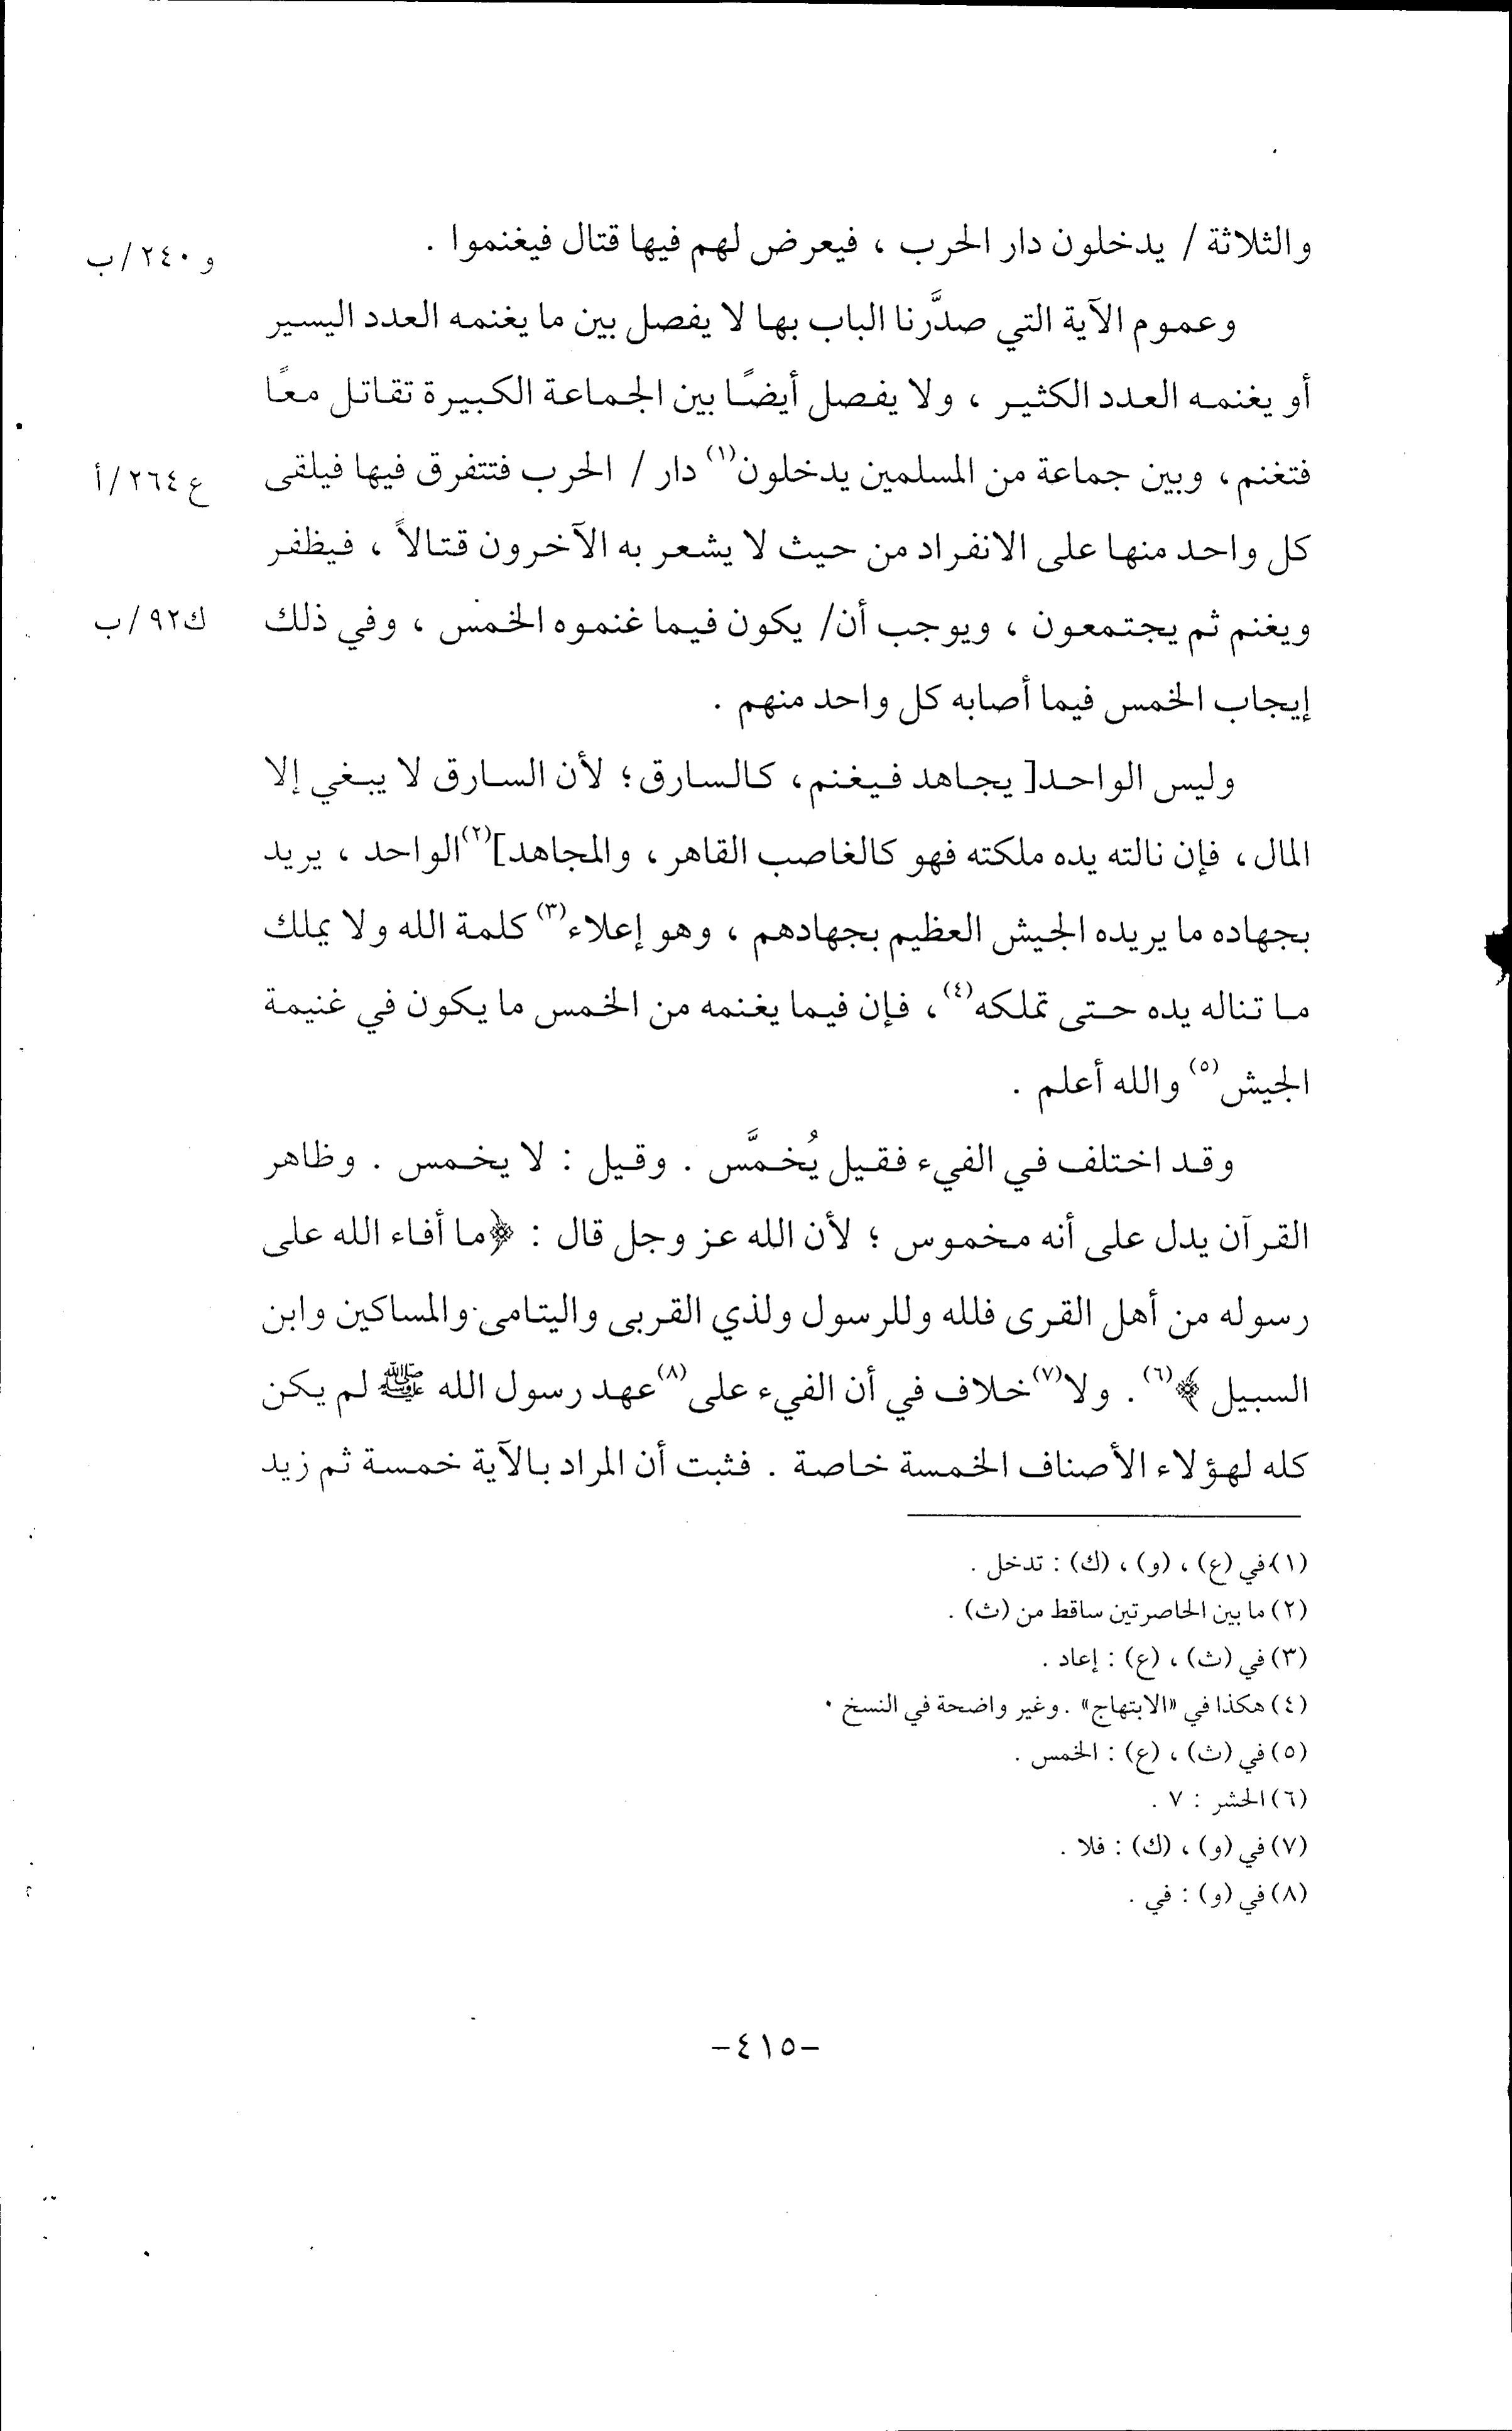 والثلاثة / يدخلون دار الحرب ، فيعرض لهم فيها قتال فيغنموا .
و ٢٤٠/ب
وعموم الآية التي صدَّرنا الباب بها لا يفصل بين ما يغنمه العدد اليسير
أو يغنمه العدد الكثير ، ولا يفصل أيضًا بين الجماعة الكبيرة تقاتل معًا
فتغنم، وبين جماعة من المسلمين يدخلون(١) دار / الحرب فتتفرق فيها فيلقى
ع ٢٦٤/أ
كل واحد منها على الانفراد من حيث لا يشعر به الآخرون قتالاً ، فيظفر
ويغنم ثم يجتمعون ، ويوجب أن/ يكون فيما غنموه الخمس ، وفي ذلك
ك٩٢/ب
إيجاب الخمس فيما أصابه كل واحد منهم .
وليس الواحد[ يجاهد فيغنم، كالسارق؛ لأن السارق لا يبغي إلا
المال، فإن نالته يده ملكته فهو كالغاصب القاهر، والمجاهد](٢)الواحد ، يريد
بجهاده ما يريده الجيش العظيم بجهادهم ، وهو إعلاء(٣) كلمة الله ولا يملك
ما تناله يده حتى تملكه(٤)، فإن فيما يغنمه من الخمس ما يكون في غنيمة
الجيش(٥) والله أعلم .
وقد اختلف في الفيء فقيل يُخمَّس . وقيل : لا يخمس . وظاهر
القرآن يدل على أنه مخموس ؛ لأن الله عز وجل قال : ﴿ما أفاء الله على
رسوله من أهل القرى فلله وللرسول ولذي القربى واليتامى والمساكين وابن
السبيل ﴾(٦). ولا(٧)خلاف في أن الفيء على(٨)عهد رسول الله ﷺ لم يكن
كله لهؤلاء الأصناف الخمسة خاصة . فثبت أن المراد بالآية خمسة ثم زيد
(١) في (ع) ، (و) ، (ك) : تدخل .
(٢) ما بين الحاصرتين ساقط من (ث) .
(٣) في (ث) ، (ع) : إعاد .
(٤) هكذا في «الابتهاج» . وغير واضحة في النسخ .
(٥) في (ث) ، (ع) : الخمس .
(٦) الحشر : ٧ .
(٧) في (و) ، (ك) : فلا .
(٨) في (و) : في .
-٤١٥-